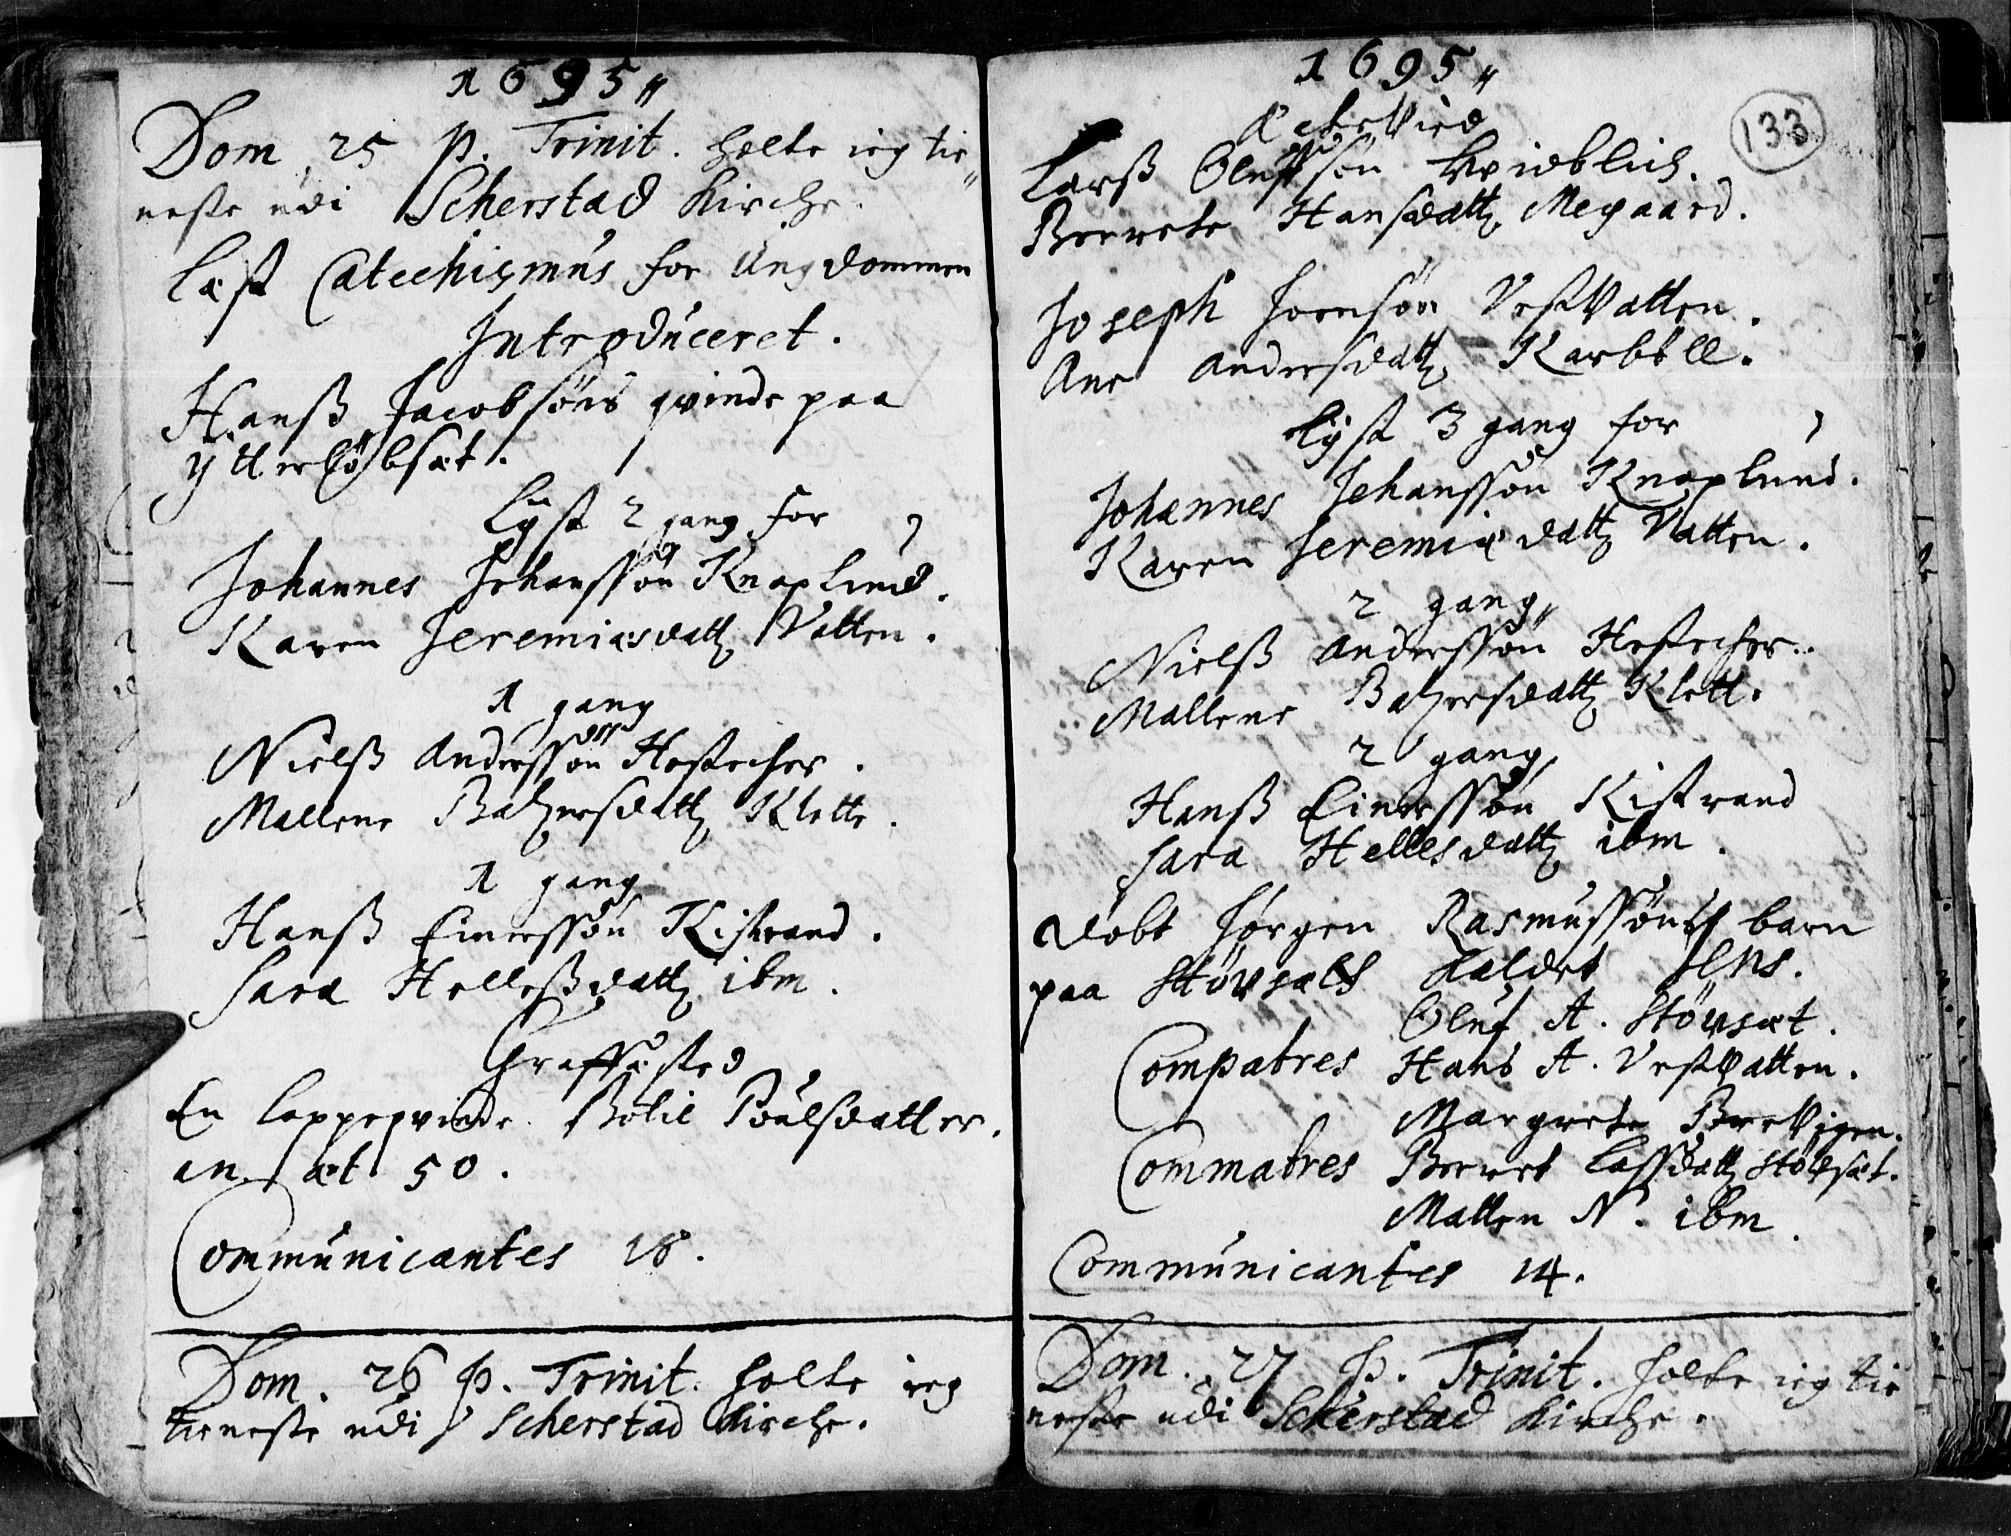 1695
Dom 25 p. Trinit. holte ieg tie
neste udi Scherstad Kirche.
Læst Catechismus for Ungdommen
Introduceret.
Hanß Jacobsøns qvinde paa
Ytterløbsæt.
Lyst 2 gang for
Johannes Johanssøn Knaplund.
Karen Jeremiæsdatt Vatten.
1 gang
Nielß Anderssøn Hestecher.
Mallene Baltzersdatt Klette.
1 gang
Hanß Einerssøn Kistrand.
Sara Helleßdatt ibm.
Graffæsted
En lappeqvinde Botil Poulsdatter.
an. æt 50.
Communicantes 18.
Dom. 26 p. Trinit. holte ieg
tieneste udi Scherstad Kirche.
1695
133
Ectevied
Larß Olufsøn Hvidblich.
Beerete Hansdatt Megaard.
Joseph Joensøn Vestvatten.
Ane Andersdatt Karbøll.
Lyst 3 gang for
Johannes Johanssøn Knaplund.
Karen Jeremiædatt Vatten.
2 gang
Nielß Anderssøn Hestecher.
Mallene Baltzersdatt Klett.
2 gang
Hanß Einerssøn Kistrand
Sara Hellesdatt ibm.
Døbt Jørgen Rasmussøns barn
paa Støvsæt kaldet Jens.
Oluf A. Støvsæt.
Compatres Hans A. Vestvatten.
Margrete Brevigen.
Commatres Beeret Lassdatt Støvsæt.
Mallen N. ibm
Communicantes 14.
Dom. 27 p. Trinit. holte ieg tie
neste udi Scherstad Kirche.